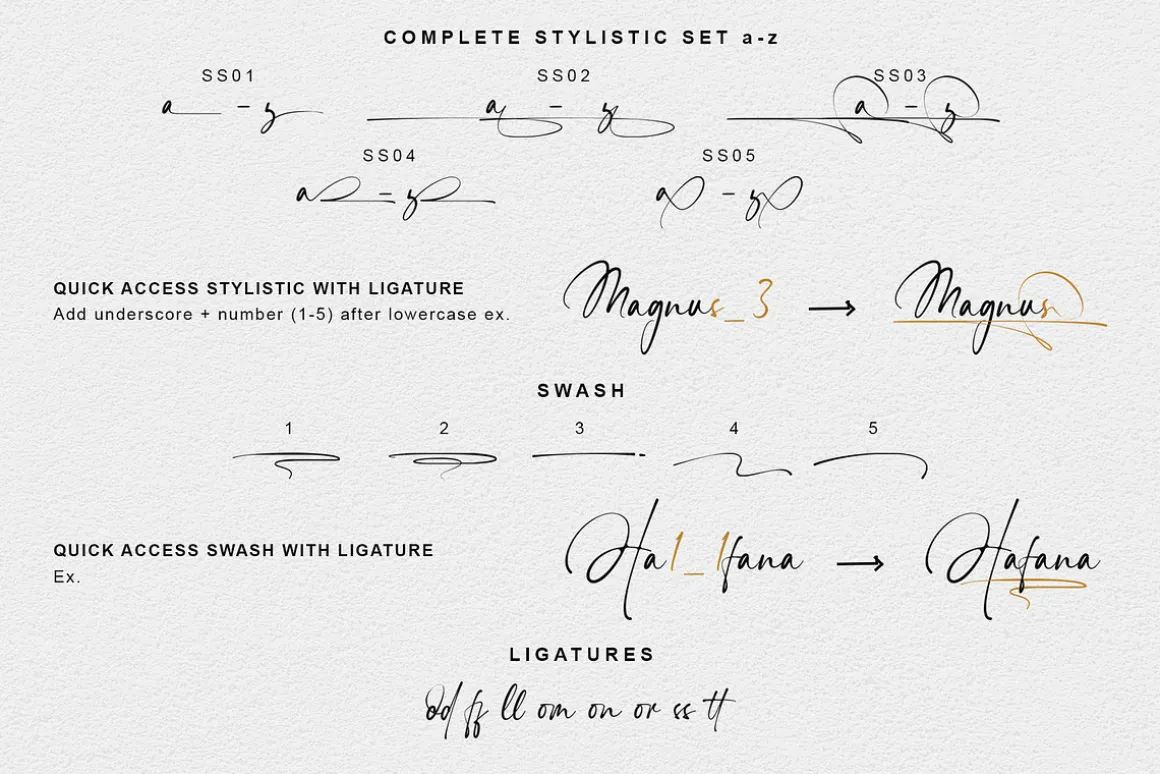 COMPLETE STYLISTIC SET a-z
SS01 SS02 SS03
a - z a - z a - z
SS04 SS05
a - z a - z
QUICK ACCESS STYLISTIC WITH LIGATURE
Add underscore + number (1-5) after lowercase ex.
Magnus_3 → Magnus
SWASH
1 2 3 4 5
QUICK ACCESS SWASH WITH LIGATURE
Ex.
Ha1_1fana → Hafana
LIGATURES
dd ff ll om on or ss tt